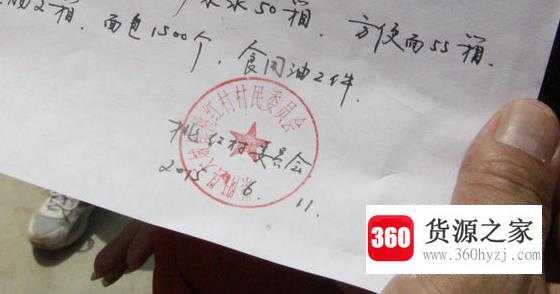 水50箱. 方便面55箱.
2箱, 面包1500个, 食用油2件.
红村村民委员会
桃红村委员会
2015. 6. 11.
360 货源之家
www.360hyzj.com